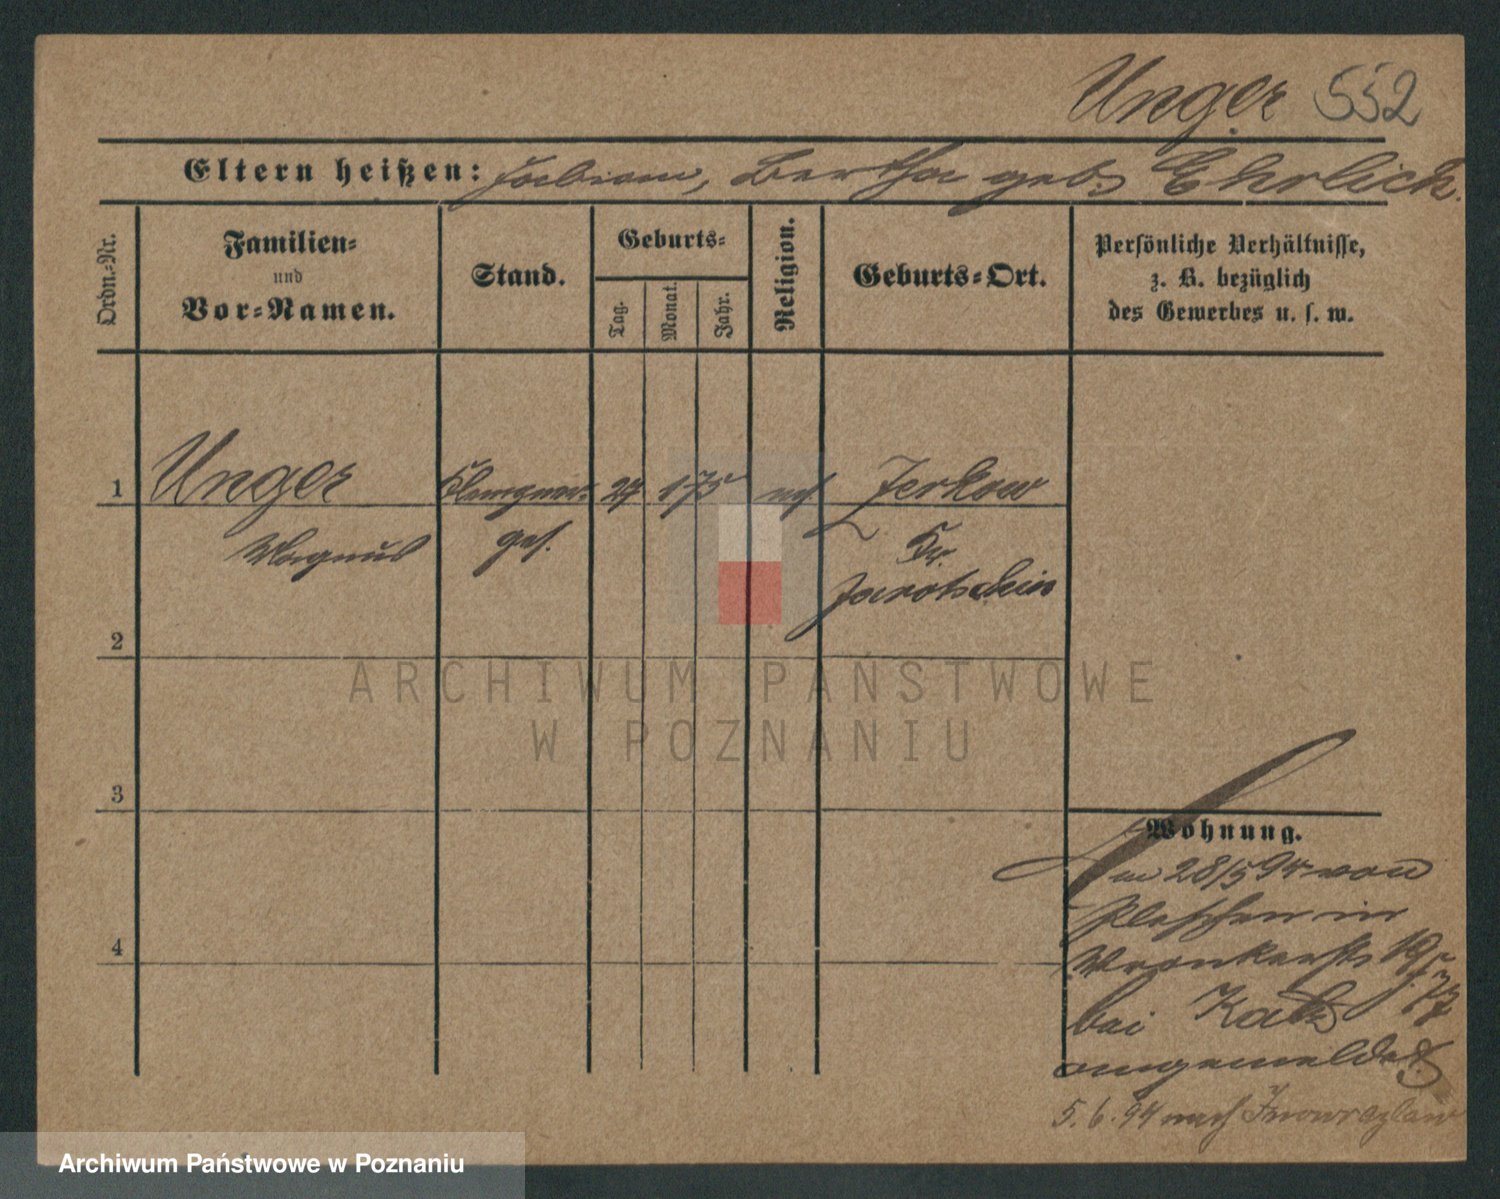 Unger 552
Eltern heißen: Fabian, Bertha geb. Ehrlich.
Ordn.-Nr.
Familien-
und
Vor-Namen.
Stand.
Geburts-
Tag.
Monat.
Jahr.
Religion.
Geburts-Ort.
Persönliche Verhältnisse,
z. B. bezüglich
des Gewerbes u. s. w.
1 Unger Klempner- 27 1 75 mos. Zerkow
Magnus ges. Kr.
Jarotschin
2
3
4
Wohnung.
Am 28/5 94 von
Pleschen in
Wronkerstr. 19
bei Katz
angemeldet
5.6.94 nach Inowrazlaw
ARCHIWUM PAŃSTWOWE
W POZNANIU
Archiwum Państwowe w Poznaniu